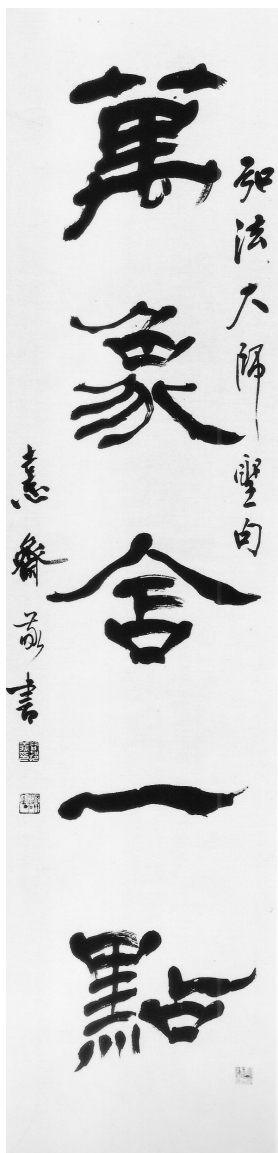 弘法大師聖句
萬象含一點
齋敬書